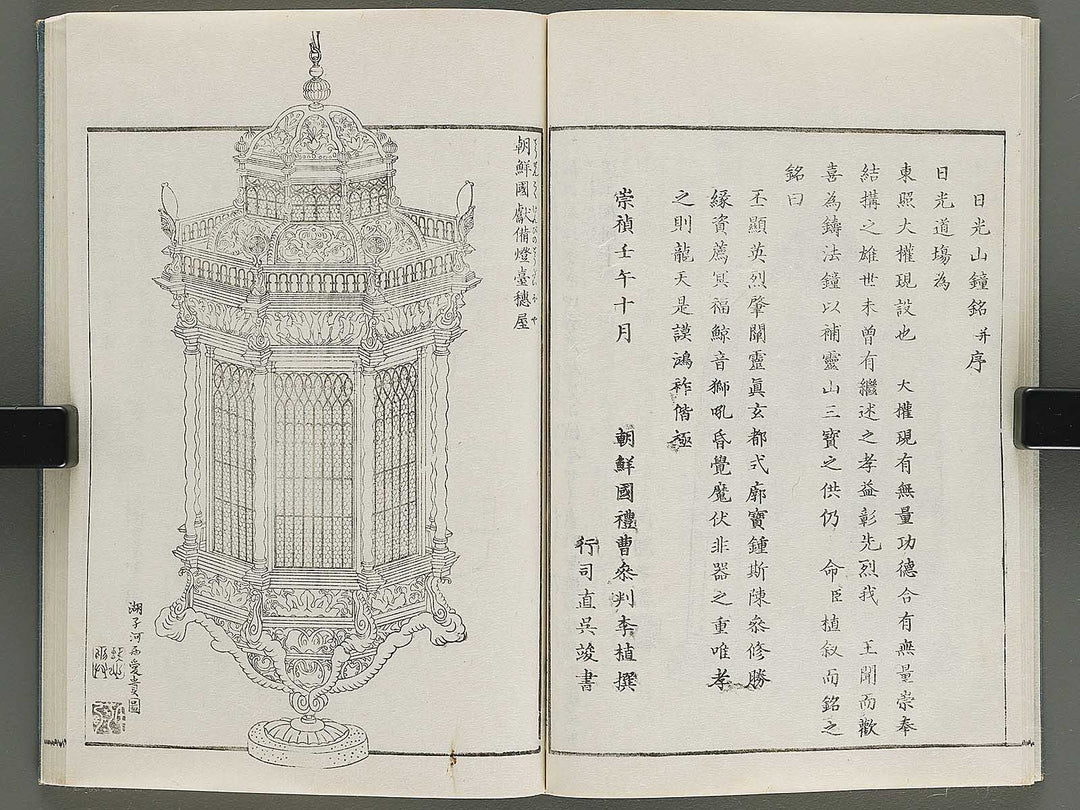 日光山鐘銘并序
日光道場為
東照大權現設也 大權現有無量功德合有無量崇奉
結搆之雄世未曾有繼述之孝益彰先烈我 王聞而歡
喜為鑄法鐘以補靈山三寳之供仍 命臣植叙而銘之
銘曰
丕顯英烈肇闡靈眞玄都式廓寳鍾斯陳叅修勝
緣資薦冥福鯨音獅吼昏覺魔伏非器之重唯孝
之則龍天是護鴻祚偕極
崇禎壬午十月 朝鮮國禮曹叅判李植撰
行司直吳竣書
朝鮮國獻備燈臺穗屋